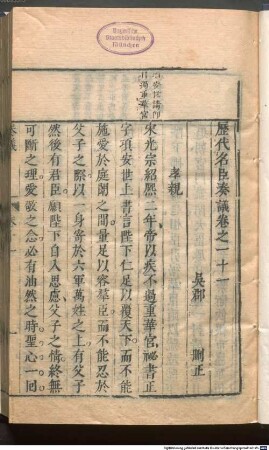 Bayerische
Staatsbibliothek
München
歷代名臣奏議卷之一十一
吳郡
刪正
孝親
宋光宗紹熙二年帝以疾不過重華宮祕書正
字項安世上書言陛下仁足以覆天下而不能
施愛於庭闈之間量足以容羣臣而不能忍於
父子之際以一身寄於六軍萬姓之上有父子
然後有君臣願陛下自入思慮父子之情終無
可斷之理愛敬之念必有油然之時聖心一回